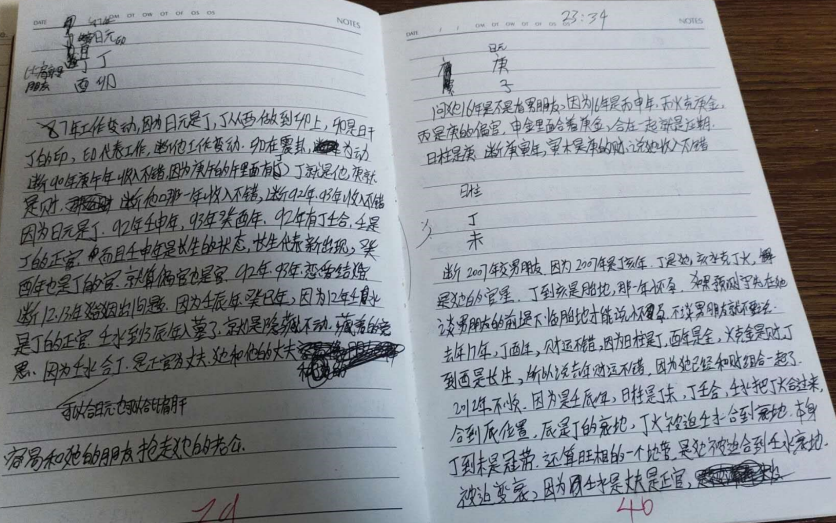 DATE
NOTES
日元
丁
酉 卯
87年工作变动,因为日元是丁,丁从酉做到卯上,卯是日干
丁的印,印代表工作,断他工作变动.卯在震卦,为动
断90年庚午年收入不错,因为庚午的午里面有丁,丁就是他,庚就
是财.断他那一年收入不错,断92年.93年收入不错
因为日元是丁.92年壬申年,93年癸酉年.92年有丁壬合,壬是
丁的正官.而且壬申年是长生的状态,长生代表新出现,癸
酉年也是丁的官.就算偏官也是官.92年.93年恋爱结婚
断12.13年婚姻出问题.因为壬辰年.癸巳年,因为12年壬水
是丁的正官.壬水到辰年入墓了.就是隐藏不动.藏着的意
思.因为壬水合丁.是正官为丈夫.她和他的丈夫
可以合日元也可以合比肩干
容易和她的朋友抢走她的老公.
29
DATE
23:34
NOTES
日元
庚
子
问她16年是不是有男朋友,因为16年是丙申年.丙火克庚金,
丙是庚的偏官,申金里面含着庚金,合在一起就是应期.
日柱是庚 断庚寅年,寅木是庚的财.说她收入不错
日柱
丁
未
断2007年交男朋友.因为2007年是丁亥年.丁是她,亥水克丁火,解
是她的官星.丁到亥是胎地,那一年怀孕.如果预测字头在她
谈男朋友的前提下临胎地才能说怀孕,不谈男朋友就不要说.
去年17年,丁酉年,财运不错,因为日柱是丁,酉年是金,火克金是财,丁
到酉是长生,所以说去年财运不错.因为她已经和财组合一起了.
2012年不好.因为是壬辰年,日柱是丁未,丁壬合,壬水把丁火合过来,
合到辰位置,辰是丁的衰地,丁火被迫壬水合到衰地.本身
丁到未是冠带.还算旺相的一个地管.是她被迫合到壬水衰地.
被迫变衰,因为壬水是丈夫是正官,
40